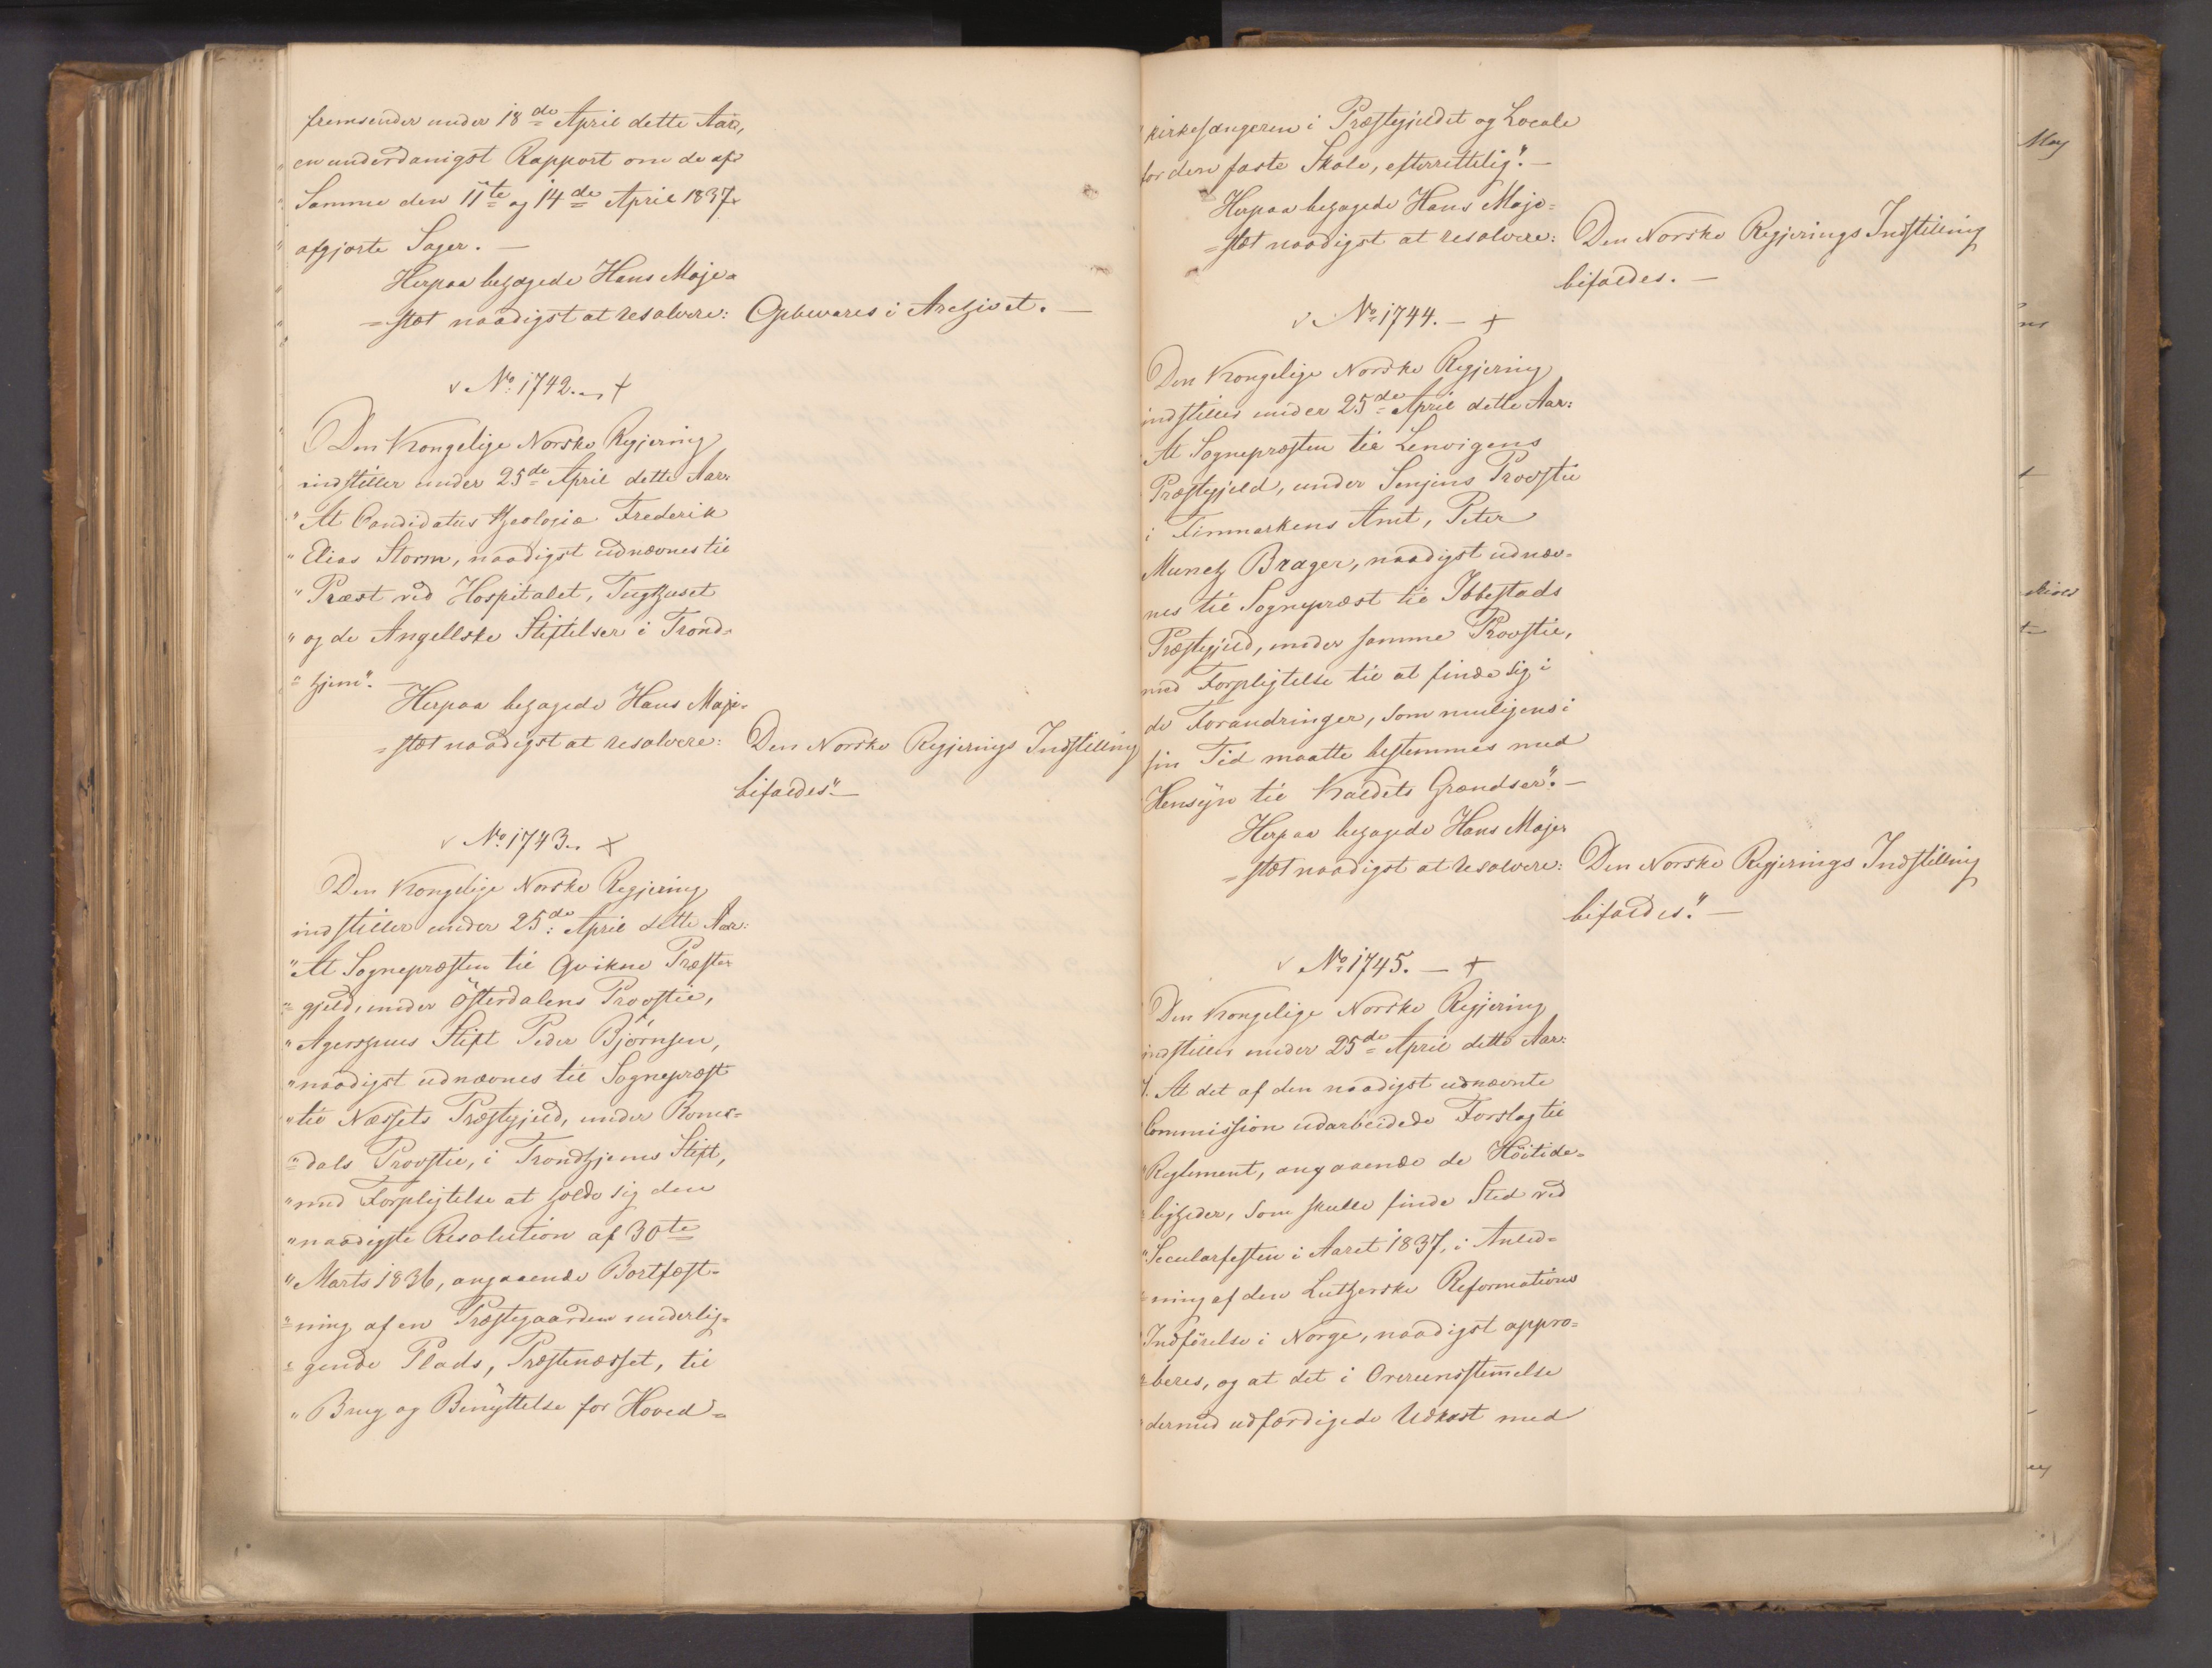 fremsender under 18de April dette Aar,
en underdanigst Rapport om de af
Samme den 11te og 14de April 1837
afgjorte Sager. —
Herpaa behagede Hans Maje=
=stæt naadigst at resolvere: Opbevares i Archivet. —
No 1742. +
Den Kongelige Norske Regjering
indstiller under 25de April dette Aar:
"At Candidatus theologiæ Frederik
"Elias Storm, naadigst udnævnes til
"Præst ved Hospitalet, Tugthuset
"og de Angellske Stiftelser i Trond=
"hjem". —
Herpaa behagede Hans Maje=
=stæt naadigst at resolvere: Den Norske Regjerings Indstilling
bifaldes". —
No 1743. +
Den Kongelige Norske Regjering
indstiller under 25de April dette Aar:
"At Sognepræsten til Qvikne Præste=
"gjeld, under Österdalens Provstie,
"Agershuus Stift Peder Björnsen,
"naadigst udnævnes til Sognepræst
"til Næssets Præstegjeld, under Roms=
"dals Provstie, i Trondhjems Stift,
"med Forpligtelse at holde sig den
"naadigste Resolution af 30te
"Marts 1836, angaaende Bortfæst=
"ning af en Præstegaarden underlig=
"gende Plads, Præstenæsset, til
"Brug og Benyttelse for Hoved=
kirkesangeren i Præstegjeldet og Locale
for den faste Skole, efterrettelig". —
Herpaa behagede Hans Maje=
=stæt naadigst at resolvere: Den Norske Regjerings Indstilling
bifaldes. —
No 1744. — +
Den Kongelige Norske Regjering
indstiller under 25de April dette Aar:
At Sognepræsten til Lenvigens
Præstegjeld, under Senjens Provstie
i Finmarkens Amt, Peter
Munch Brager, naadigst udnæv=
nes til Sognepræst til Ibbestads
Præstegjeld, under samme Provstie,
med Forpligtelse til at finde sig i
de Forandringer, som muligens i
sin Tid maatte bestemmes med
Hensyn til Kaldets Grændser". —
Herpaa behagede Hans Maje=
=stæt naadigst at resolvere: Den Norske Regjerings Indstilling
bifaldes". —
No 1745. — +
Den Kongelige Norske Regjering
indstiller under 25de April dette Aar:
1. At det af den naadigst udnævnte
Commission udarbeidede Forslag til
"Reglement, angaaende de Höitide=
"ligheder, som skulle finde Sted ved
"Secularfesten i Aaret 1837, i Anled=
"ning af den Lutherske Reformations
"Indförelse i Norge, naadigst appro=
"beres, og at det i Overeensstemmelse
"dermed udfærdigede Udkast med
May